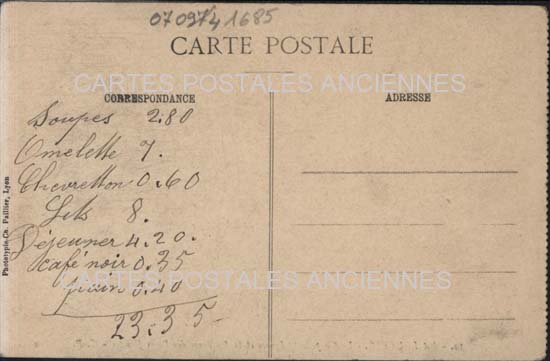 0709741685
CARTE POSTALE
CARTES POSTALES ANCIENNES
CORRESPONDANCE
ADRESSE
Soupes 2.80
Omelette 7.
Chevretton 0.60
Lits 8.
Déjeuner 4.20.
café noir 0.35
pain 0.40
23.35
CARTES POSTALES ANCIENNES
Phototypie Ch. Paillier, Lyon